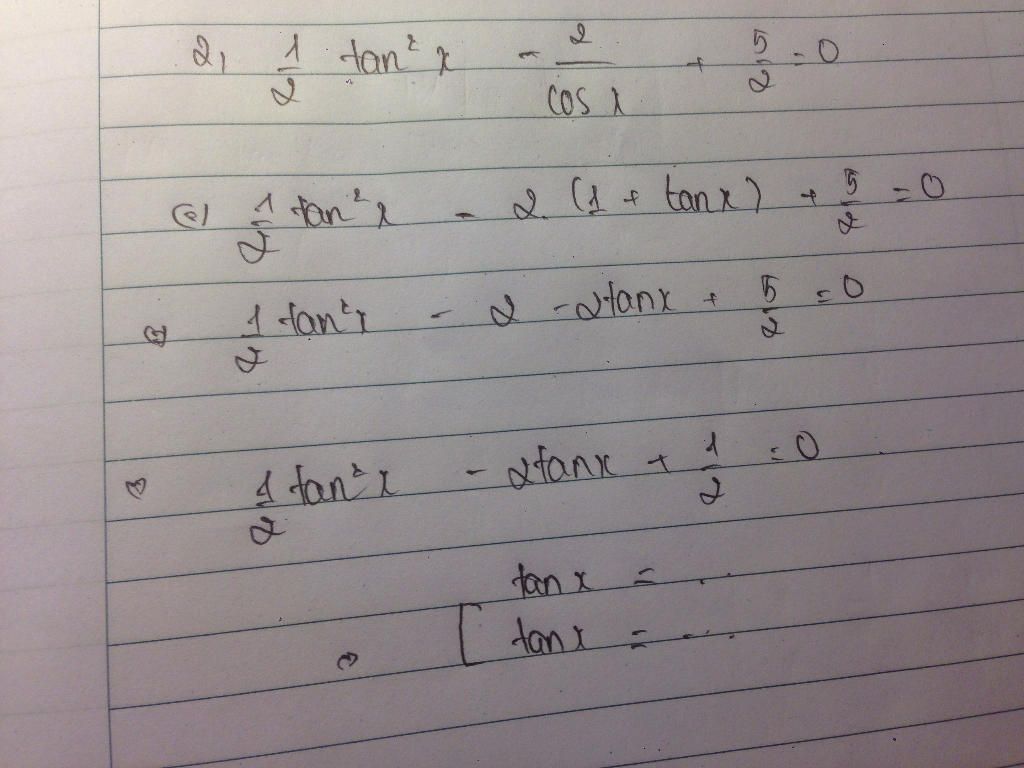 2, 1/2 tan² x - 2/cos x + 5/2 = 0
(=) 1/2 tan² x - 2. (1 + tan x) + 5/2 = 0
(=) 1/2 tan² x - 2 - 2tan x + 5/2 = 0
(=) 1/2 tan² x - 2tan x + 1/2 = 0
tan x = ...
(=) [ tan x = ...